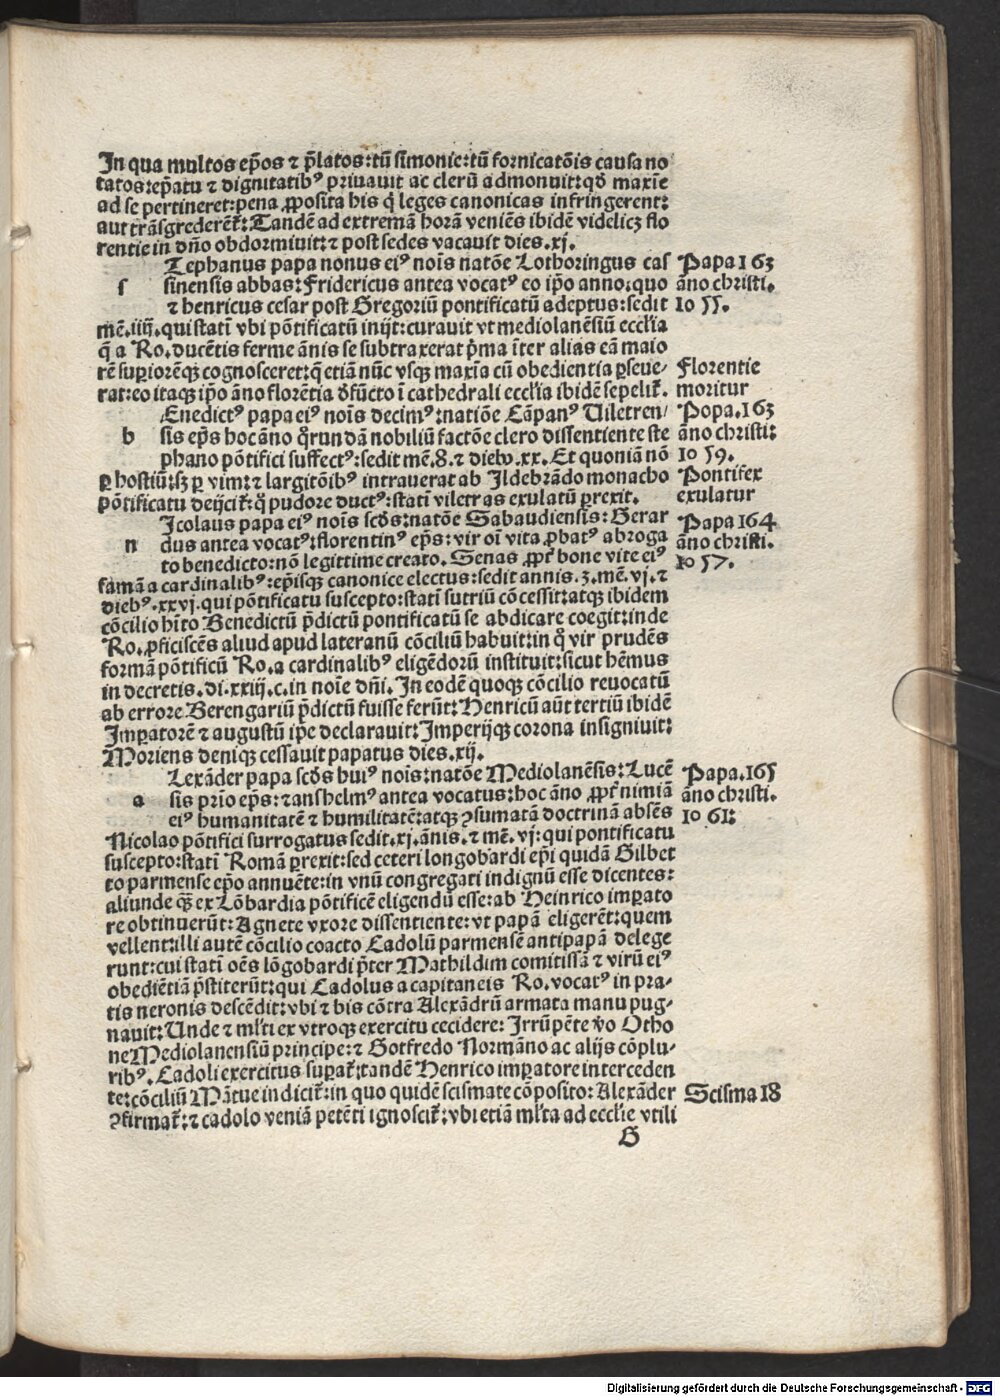 In qua multos ep̄os ⁊ p̄latos:tū simonie:tū fornicatōis causa no
tatos:ep̄atu ⁊ dignitatibꝰ priuauit ac clerū admonuit:qđ maxīe
ad se pertineret:pena ꝓposita his q̄ leges canonicas infringerent:
aut trāsgrederēt᷑:Tandē ad extremā horā veniēs ibidē videlicꝫ flo
rentie in dn̄o obdormiuit:⁊ post sedes vacauit dies.xj.
Tephanus papa nonus eiꝰ noīs natōe Lothoringus cas
s sinensis abbas:Fridericus antea vocatꝰ eo ip̄o anno:quo
⁊ henricus cesar post Gregoriū pontificatū adeptus:sedit
mē.iiij.qui statī vbi pōtificatū inijt:curauit vt mediolanēsiū eccl̄ia
q̄ a Ro.ducētis ferme ānis se subtraxerat p̄ma īter alias eā maio
rē superiorēqꝫ cognosceret:q̄ etiā nūc vsqꝫ maxīa cū obedientia ꝑseue/
rat:eo itaqꝫ ip̄o āno florētia dēfūcto ī cathedrali eccl̄ia ibidē sepelit᷑.
Enedictꝰ papa eiꝰ noīs decimꝰ:natiōe Cāpanꝰ Uiletren/
b sis ep̄s hoc āno q̄rundā nobiliū factōe clero dissentiente ste
phano pōtifici suffectꝰ:sedit mē.8.⁊ diebꝰ.xx.Et quoniā nō
ꝑ hostiū:sꝫ ꝑ vim:⁊ largitōibꝰ intrauerat ab Ildebrādo monacho
pōtificatu deijcit᷑:q̄ pudore ductꝰ:statī viletras exulatū ꝑrexit.
Icolaus papa eiꝰ noīs scd̄s:natōe Sabaudiensis:Berar
n dus antea vocatꝰ:florentinꝰ ep̄s:vir oī vita ꝓbatꝰ abroga
to benedicto:nō legittime creato.Senas ꝓpt᷑ bone vite eiꝰ
famā a cardinalibꝰ:ep̄isqꝫ canonice electus:sedit annis.3.mē.vj.⁊
diebꝰ.xxvj.qui pōtificatu suscepto:statī sutriū cōcessit:atqꝫ ibidem
cōcilio hīto Benedictū p̄dictū pontificatū se abdicare coegit:inde
Ro.ꝓficiscēs aliud apud lateranū cōciliū habuit:in q̄ vir prudēs
formā pōtificū Ro.a cardinalibꝰ eligēdorū instituit:sicut hēmus
in decretis.di.xxiij.c.in noīe dn̄i.In eodē quoqꝫ cōcilio reuocatū
ab errore Berengariū p̄dictū fuisse ferūt:Henricū aūt tertiū ibidē
Imperatorē ⁊ augustū ip̄e declarauit:Imperijqꝫ corona insigniuit:
Moriens deniqꝫ cessauit papatus dies.xij.
Lexāder papa scd̄s huiꝰ noīs:natōe Mediolanēsis:Lucē
a sis prīo ep̄s:⁊ anshelmꝰ antea vocatus:hoc āno ꝓpt᷑ nimiā
eiꝰ humanitatē ⁊ humilitatē:atqꝫ ꝯsumatā doctrinā absēs
Nicolao pōtifici surrogatus sedit.xj.ānis.⁊ mē.vj:qui pontificatu
suscepto:statī Romā ꝑrexit:sed ceteri longobardi ep̄i quidā Gilbet
to parmense ep̄o annuēte:in vnū congregati indignū esse dicentes:
aliunde qꝫ ex Lōbardia pōtificē eligendū esse:ab Heinrico imperato
re obtinuerūt:Agnete vxore dissentiente:vt papā eligerēt:quem
vellent:illi autē cōcilio coacto Cadolū parmensē antipapā delege
runt:cui statī oēs lōgobardi p̄ter Mathildim comitissā ⁊ virū eiꝰ
obediētiā p̄stiterūt:qui Cadolus a capitaneis Ro.vocatꝰ in pra-
tis neronis descēdit:vbi ⁊ bis cōtra Alexādrū armata manu pug-
nauit:Unde ⁊ ml̄ti ex vtroqꝫ exercitu cecidere:Irrūpēte v̄o Otho
ne Mediolanensiū principe:⁊ Gotfredo Normāno ac alijs cōplu-
ribꝰ.Cadoli exercitus superat᷑:tandē Henrico imperatore interceden
te:cōciliū Mātue indicit᷑:in quo quidē scismate cōposito:Alexāder
ꝯfirmat᷑:⁊ cadolo veniā petēti ignoscit᷑:vbi etiā ml̄ta ad eccl̄ie vtili
G
Papa 163
āno christi.
1055.
Florentie
moritur
Popa.163
āno christi:
1059.
Pontifex
exulatur
Papa 164
āno christi.
1057.
Papa.165
āno christi.
1061:
Scisma 18
Digitalisierung gefördert durch die Deutsche Forschungsgemeinschaft - DFG